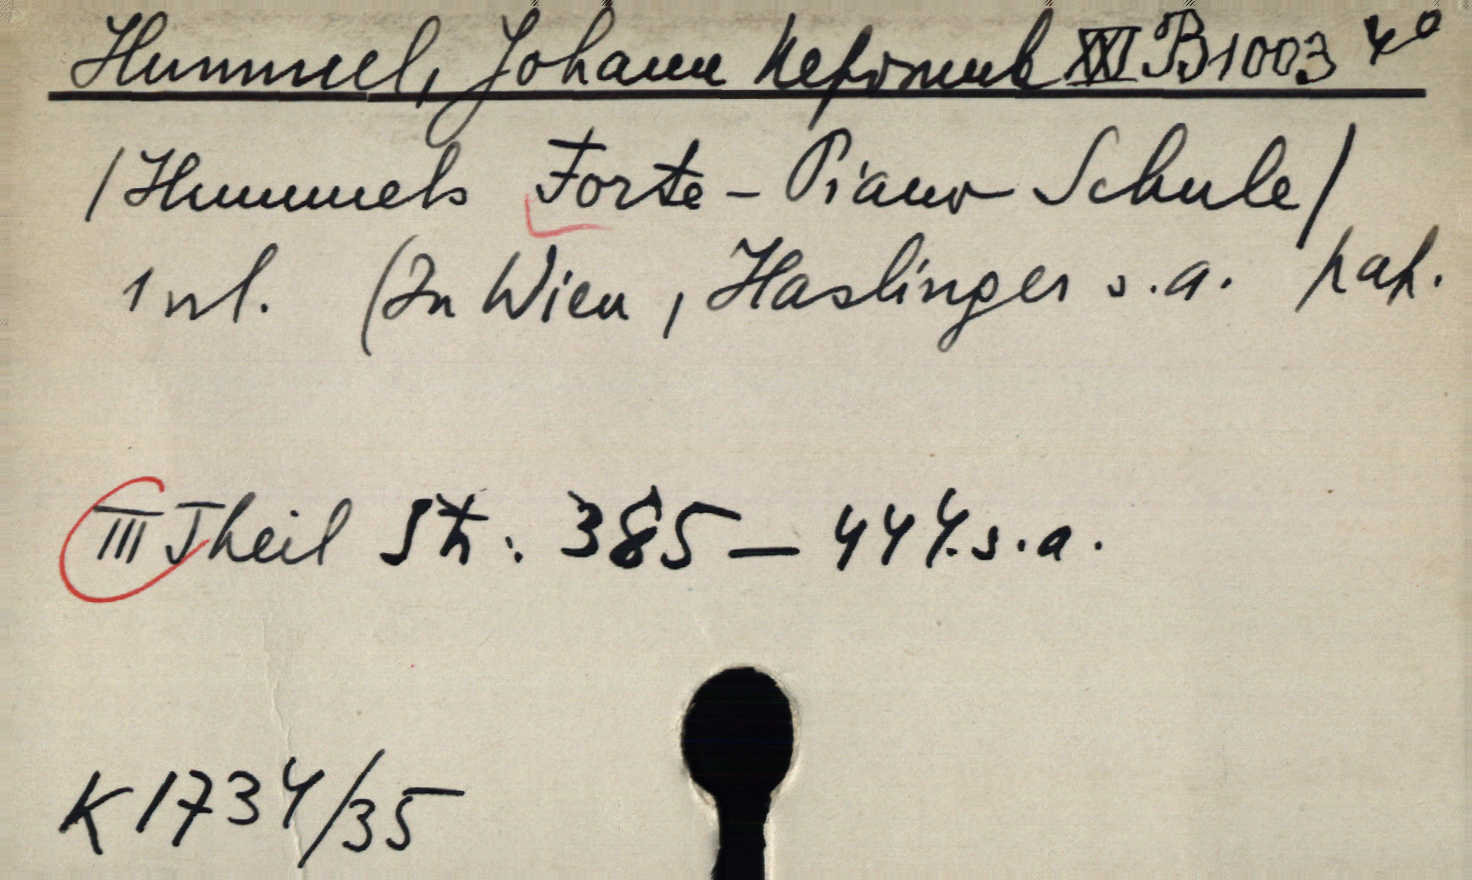 Hummel, Johann Nepomuk XXI B 1003 4°
/Hummels Forte-Piano Schule/
1 vol. (In Wien, Haslinger s.a. pap.
III Theil Str: 385-444. s.a.
K 1734/35